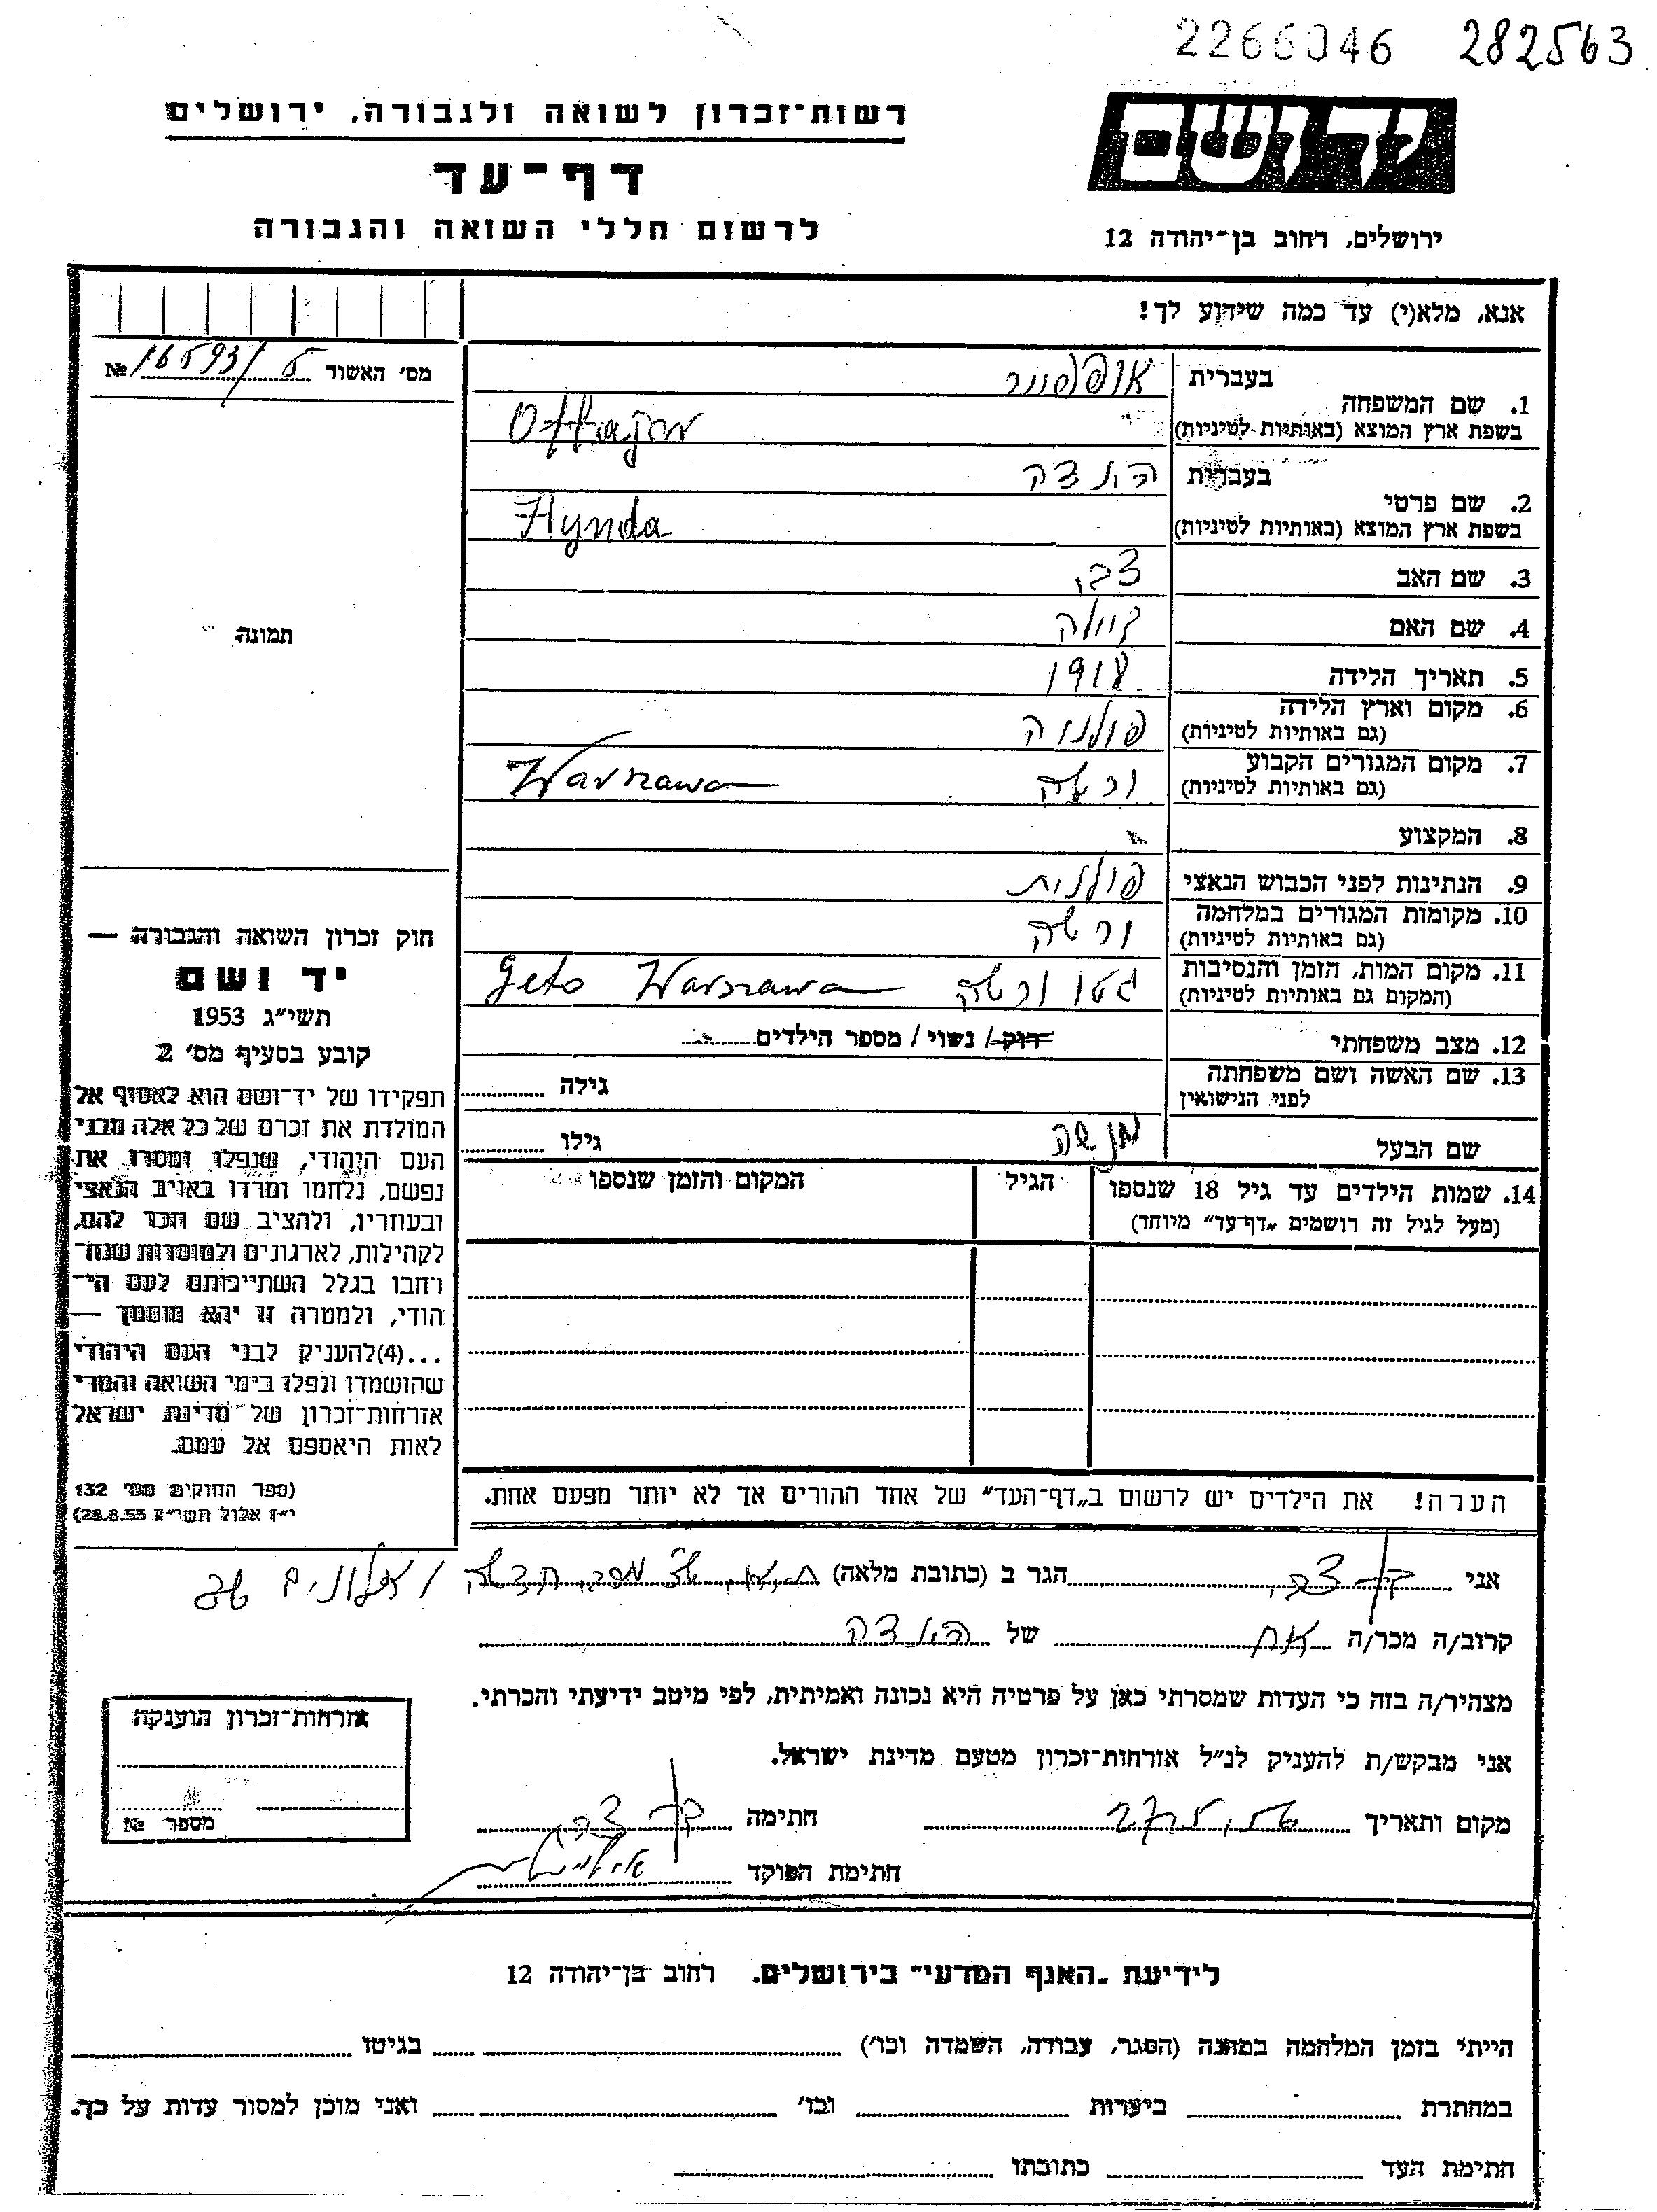 2266046 282563
רשות־זכרון לשואה ולגבורה, ירושלים
יד ושם
דף־עד
לרשום חללי השואה והגבורה
ירושלים, רחוב בן־יהודה 12
אנא, מלא(י) עד כמה שידוע לך!
מס' האשור № 16593/
1. שם המשפחה
בעברית
בשפת ארץ המוצא (באותיות לטיניות)
2. שם פרטי
בעברית הינדה
בשפת ארץ המוצא (באותיות לטיניות) Hynda
3. שם האב צבי
4. שם האם
5. תאריך הלידה 1918
6. מקום וארץ הלידה פולניה
(גם באותיות לטיניות)
7. מקום המגורים הקבוע ורשה Warszawa
(גם באותיות לטיניות)
8. המקצוע
9. הנתינות לפני הכבוש הנאצי פולנית
10. מקומות המגורים במלחמה ורשה
(גם באותיות לטיניות)
11. מקום המות, הזמן והנסיבות גטו ורשה Geto Warszawa
(המקום גם באותיות לטיניות)
12. מצב משפחתי רוק / נשוי / מספר הילדים
13. שם האשה ושם משפחתה גילה
לפני הנישואין
שם הבעל מנשה גילו
14. שמות הילדים עד גיל 18 שנספו הגיל המקום והזמן שנספו
(מעל לגיל זה רושמים „דף־עד" מיוחד)
הערה! את הילדים יש לרשום ב„דף־העד" של אחד ההורים אך לא יותר מפעם אחת.
תמונה
חוק זכרון השואה והגבורה —
יד ושם
תשי"ג 1953
קובע בסעיף מס' 2
תפקידו של יד־ושם הוא לאסוף אל
המולדת את זכרם של כל אלה מבני
העם היהודי, שנפלו ומסרו את
נפשם, נלחמו ומרדו באויב הנאצי
ובעוזריו, ולהציב שם וזכר להם,
לקהילות, לארגונים ולמוסדות שנח־
רחבו בגלל השתייכותם לעם הי־
הודי, ולמטרה זו יהא מוסמך —
...(4)להעניק לבני העם היהודי
שהושמדו ונפלו בימי השואה והמרי
אזרחות־זכרון של מדינת ישראל
לאות היאספם אל עמם.
(ספר החוקים מס' 132
י"ז אלול תשי"ג 28.8.53)
אני צבי הגר ב (כתובת מלאה)
קרוב/ה מכר/ה אח של הינדה
מצהיר/ה בזה כי העדות שמסרתי כאן על פרטיה היא נכונה ואמיתית, לפי מיטב ידיעתי והכרתי.
אני מבקש/ת להעניק לנ"ל אזרחות־זכרון מטעם מדינת ישראל.
מקום ותאריך חתימה
חתימת הפוקד
אזרחות־זכרון הוענקה
מספר №
לידיעת „האגף המדעי" בירושלים. רחוב בן־יהודה 12
הייתי בזמן המלחמה במחנה (הסגר, עבודה, השמדה וכו') בגיטו
במחתרת ביערות וכו' ואני מוכן למסור עדות על כך.
חתימת העד כתובתו